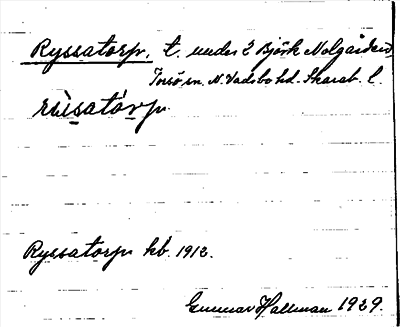 Ryssatorp, t. under 2 Björk Nolgården,
Torsö sn. N. Vadsbo hd. Skarab. l.
rùsatórp
Ryssatorp kb. 1912.
Gunnar Hallman 1929.